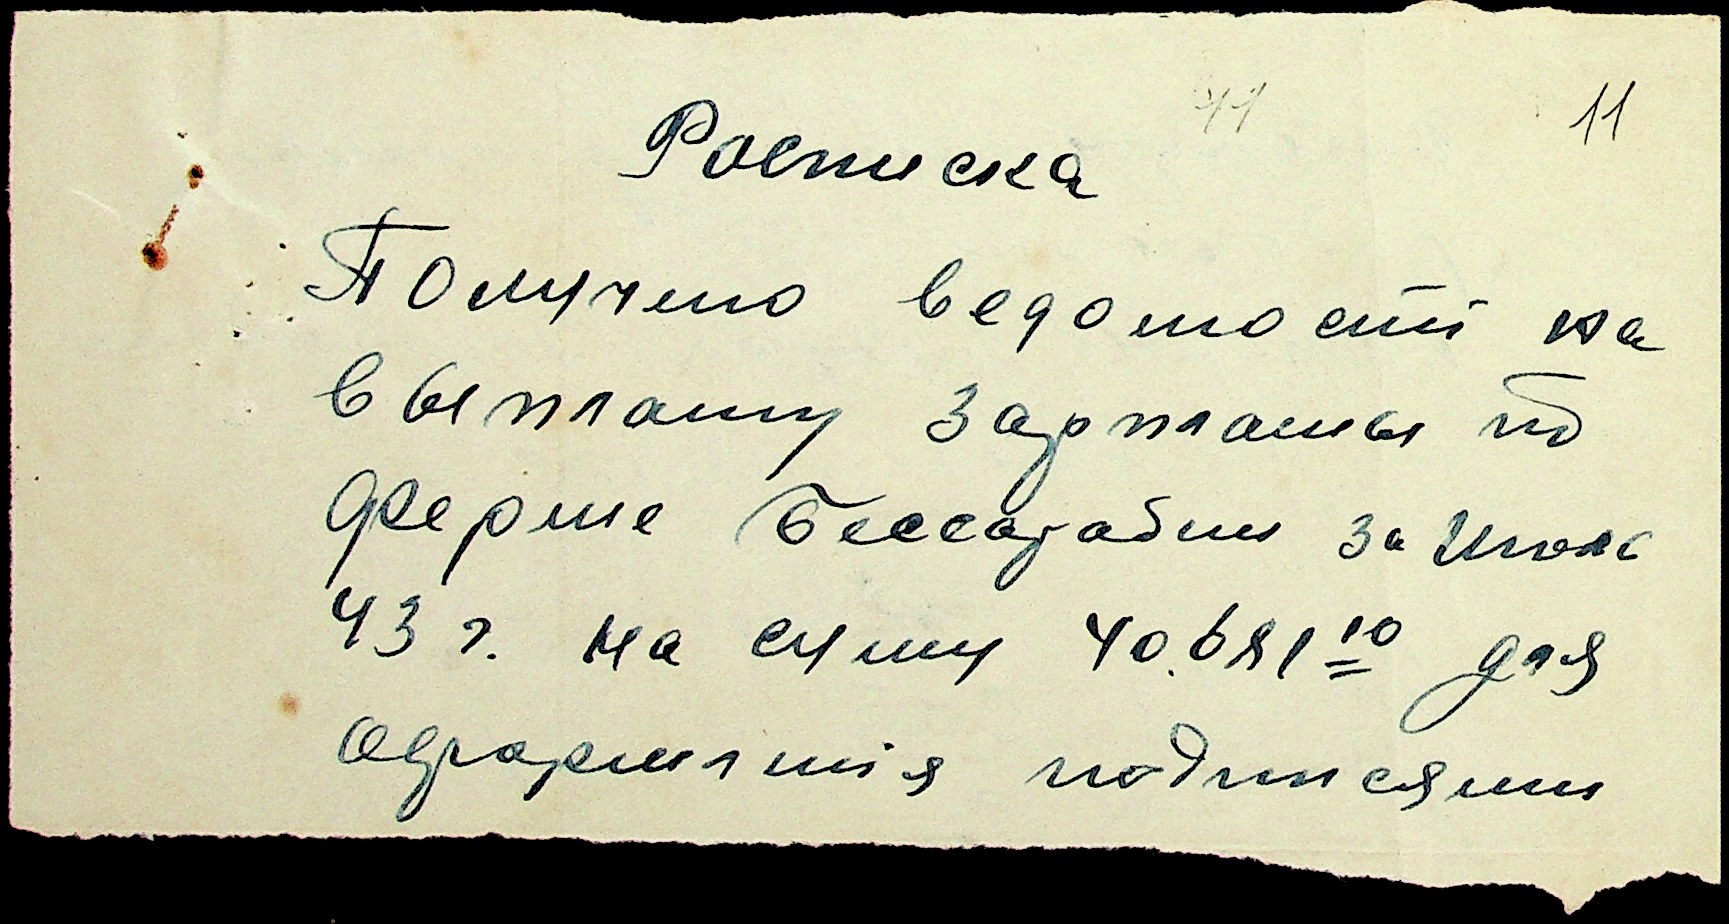 41 11
Росписка
Получено ведомості на
выплату Зарплаты по
ферме Бессарабии за Июль
43 г. на суму 40.681 10 для
оформления подписями